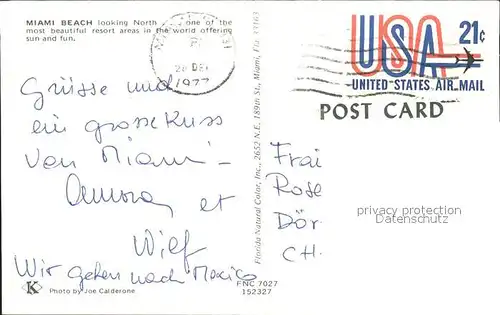 MIAMI BEACH looking North one of the
most beautiful resort areas in the world offering
sun and fun.
1977
USA 21c
UNITED STATES AIR MAIL
POST CARD
Grüsse und
ein grosse Kuss
von Miami
et
Wir gehen nach Mexico
K
Photo by Joe Calderone
Florida Natural Color, Inc., 2652 N.E. 189th St., Miami, Fla. 33163
FNC 7027
152327
Frai
Rose
Dör
CH.
privacy protection
Datenschutz